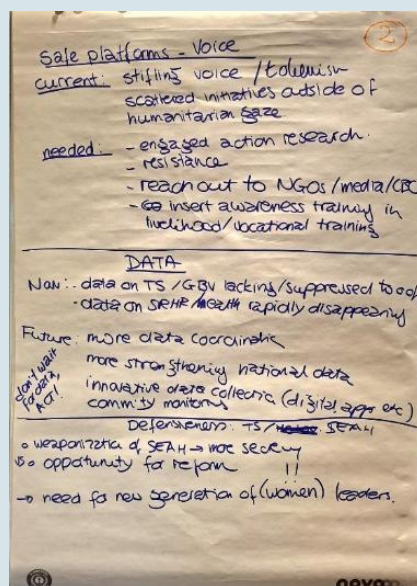 2
Safe platforms - Voice
current: stifling voice / tokenism
scattered initiatives outside of
humanitarian gaze
needed: - engaged action research.
- resistance
- reach out to NGOs/media/CBO
- insert awareness training in
livelihood/vocational training
DATA
Now: - data on TS/GBV lacking/suppressed
- data on SRHR/health rapidly disappearing
Future: more data coordination
more strengthening national data
innovative data collection (digital, apps etc)
commity monitoring
don't wait
for data,
ACT!
Defensiveness: TS/ SEAH
o weaponization of SEAH → more secrecy
o opportunity for reform !!
→ need for new generation of (women) leaders.